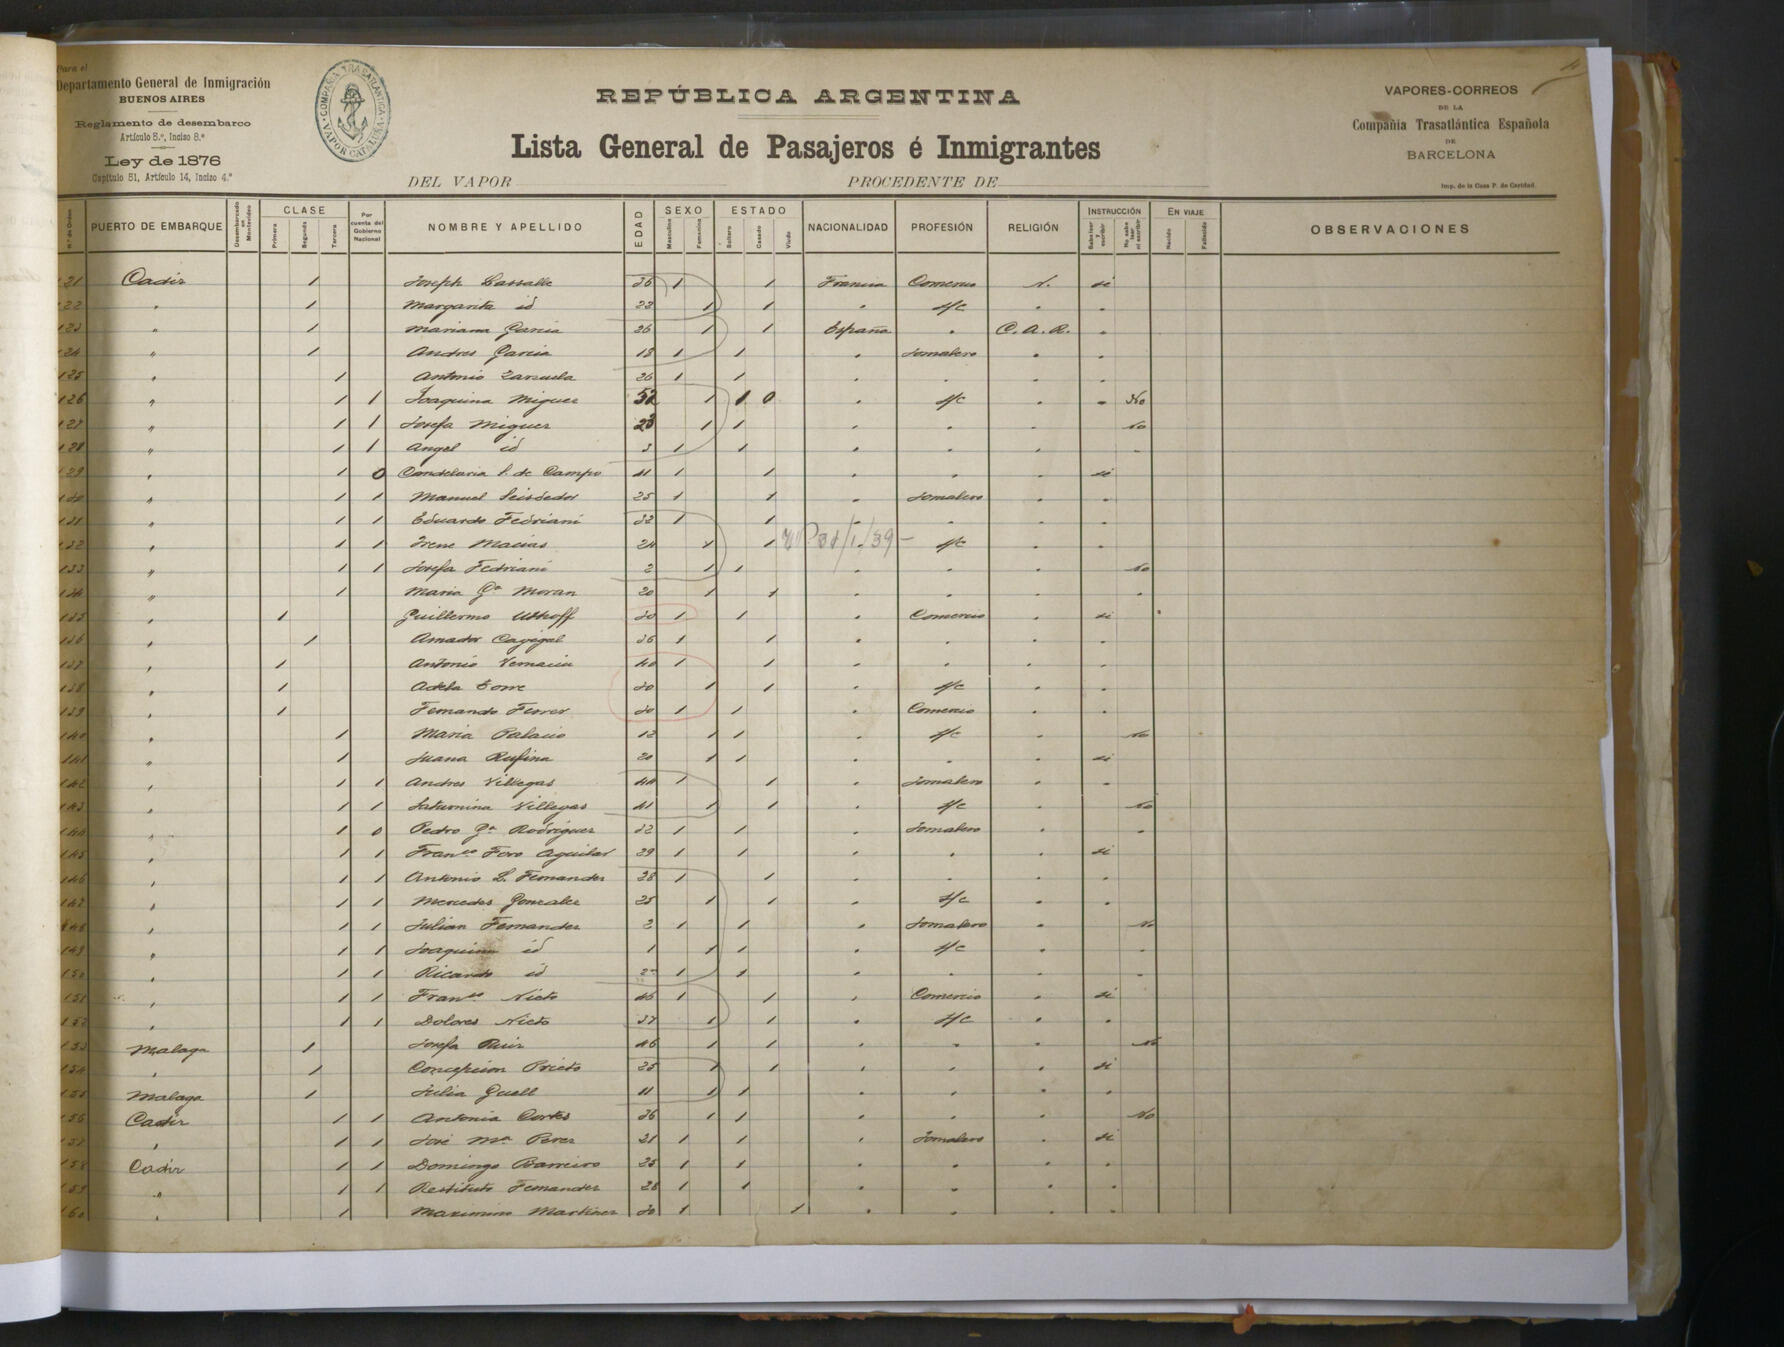 Para el
Departamento General de Inmigración
BUENOS AIRES
Reglamento de desembarco
Artículo 5.º, Inciso 8.º
Ley de 1876
Capítulo 51, Artículo 14, Inciso 4.º
COMPAÑIA TRASATLANTICA
VAPOR CATALUÑA
REPÚBLICA ARGENTINA
Lista General de Pasajeros é Inmigrantes
DEL VAPOR PROCEDENTE DE
VAPORES-CORREOS
DE LA
Compañia Trasatlántica Española
DE
BARCELONA
Imp. de la Casa P. de Caridad.
N.º de Orden PUERTO DE EMBARQUE Desembarcado en Montevideo CLASE Primera Segunda Tercera Por cuenta del Gobierno Nacional NOMBRE Y APELLIDO EDAD SEXO Masculino Femenino ESTADO Soltero Casado Viudo NACIONALIDAD PROFESIÓN RELIGIÓN INSTRUCCIÓN Sabe leer y escribir No sabe leer ni escribir EN VIAJE Nacido Fallecido OBSERVACIONES
21 Cadiz 1 Joseph Lassalle 36 1 1 Francia Comercio N. si
22 " 1 Margarita id 22 1 1 " s/c " "
123 " 1 Mariana Garcia 26 1 1 España " C. A. R. "
124 " 1 Andres Garcia 18 1 1 " Jornalero " "
125 " 1 Antonio Zarzuela 26 1 1 " " " "
126 " 1 1 Joaquina Miguez 52 1 1 0 " s/c " " No
127 " 1 1 Josefa Miguez 23 1 1 " " " No
128 " 1 1 Angel id 3 1 1 " " " "
129 " 1 0 Candelaria de Campo 41 1 1 " " " si
130 " 1 1 Manuel 25 1 1 " Jornalero " "
131 " 1 1 Eduardo Fedriani 32 1 1 " " " "
132 " 1 1 Irene Macias 24 1 1 31/1/39 s/c " "
133 " 1 1 Josefa Fedriani 2 1 1 " " " No
134 " 1 Maria Gª Moran 20 1 1 " " " "
135 " 1 Guillermo Uthoff 30 1 1 " Comercio " si
136 " 1 Amador 36 1 1 " " " "
137 " 1 Antonio 40 1 1 " " " "
138 " 1 Adela Torre 30 1 1 " s/c " "
139 " 1 Fernando Ferrer 30 1 1 " Comercio " "
140 " 1 Maria Palacio 12 1 1 " s/c " No
141 " 1 Juana Rufina 20 1 1 " " " si
142 " 1 1 Andres Villegas 44 1 1 " Jornalero " "
143 " 1 1 Saturnina Villegas 41 1 1 " s/c " No
144 " 1 0 Pedro Gª Rodriguez 32 1 1 " Jornalero " "
145 " 1 1 Franco Toro Aguilar 29 1 1 " " " si
146 " 1 1 Antonio L. Fernandez 28 1 1 " " " "
147 " 1 1 Mercedes Gonzalez 25 1 1 " s/c " "
148 " 1 1 Julian Fernandez 2 1 1 " Jornalero " No
149 " 1 1 Joaquina id 1 1 1 " s/c " "
150 " 1 1 Ricardo id 1 1 " " " "
151 " 1 1 Franco Nieto 46 1 1 " Comercio " si
152 " 1 1 Dolores Nieto 37 1 1 " s/c " "
153 Malaga 1 Josefa Ruiz 46 1 1 " " " No
154 " 1 Concepcion Prieto 25 1 1 " " " si
155 Malaga 1 Julia Guell 11 1 1 " " " "
156 Cadiz 1 1 Antonia Cortés 36 1 1 " " " No
157 " 1 1 José Mª Perez 21 1 1 " Jornalero " si
158 Cadiz 1 1 Domingo Barreiro 25 1 1 " " " "
159 " 1 1 Restituto Fernandez 28 1 1 " " " "
160 " 1 Maximino Martinez 30 1 1 " " " "